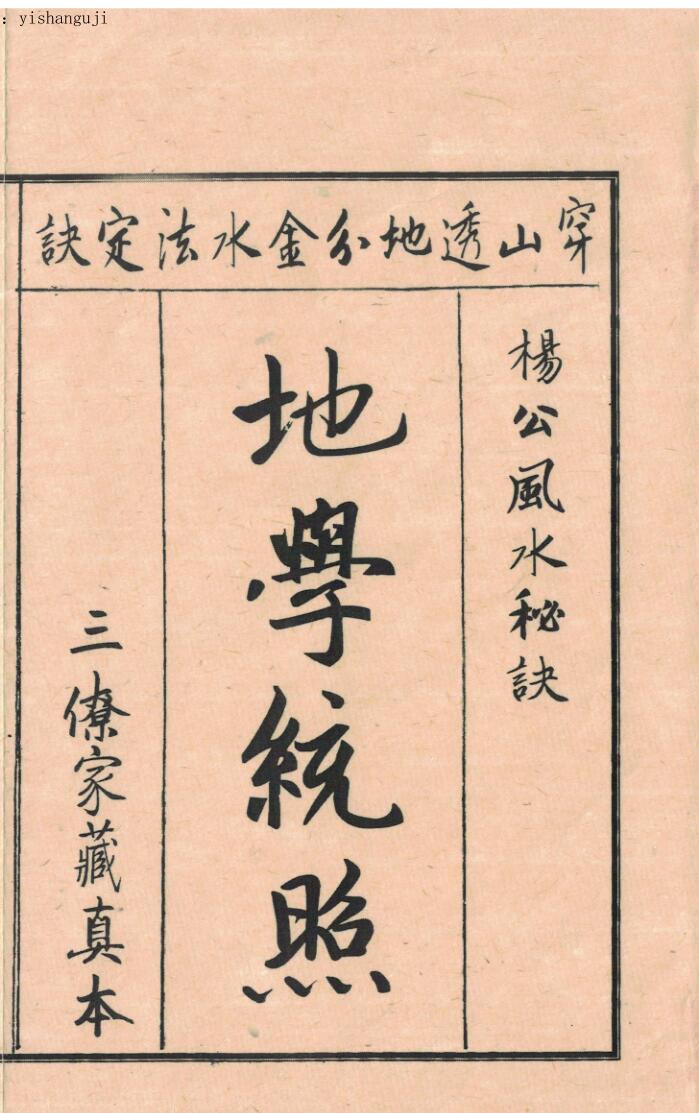 ：yishanguji
穿山透地分金水法定訣
楊公風水秘訣
地學統照
三僚家藏真本